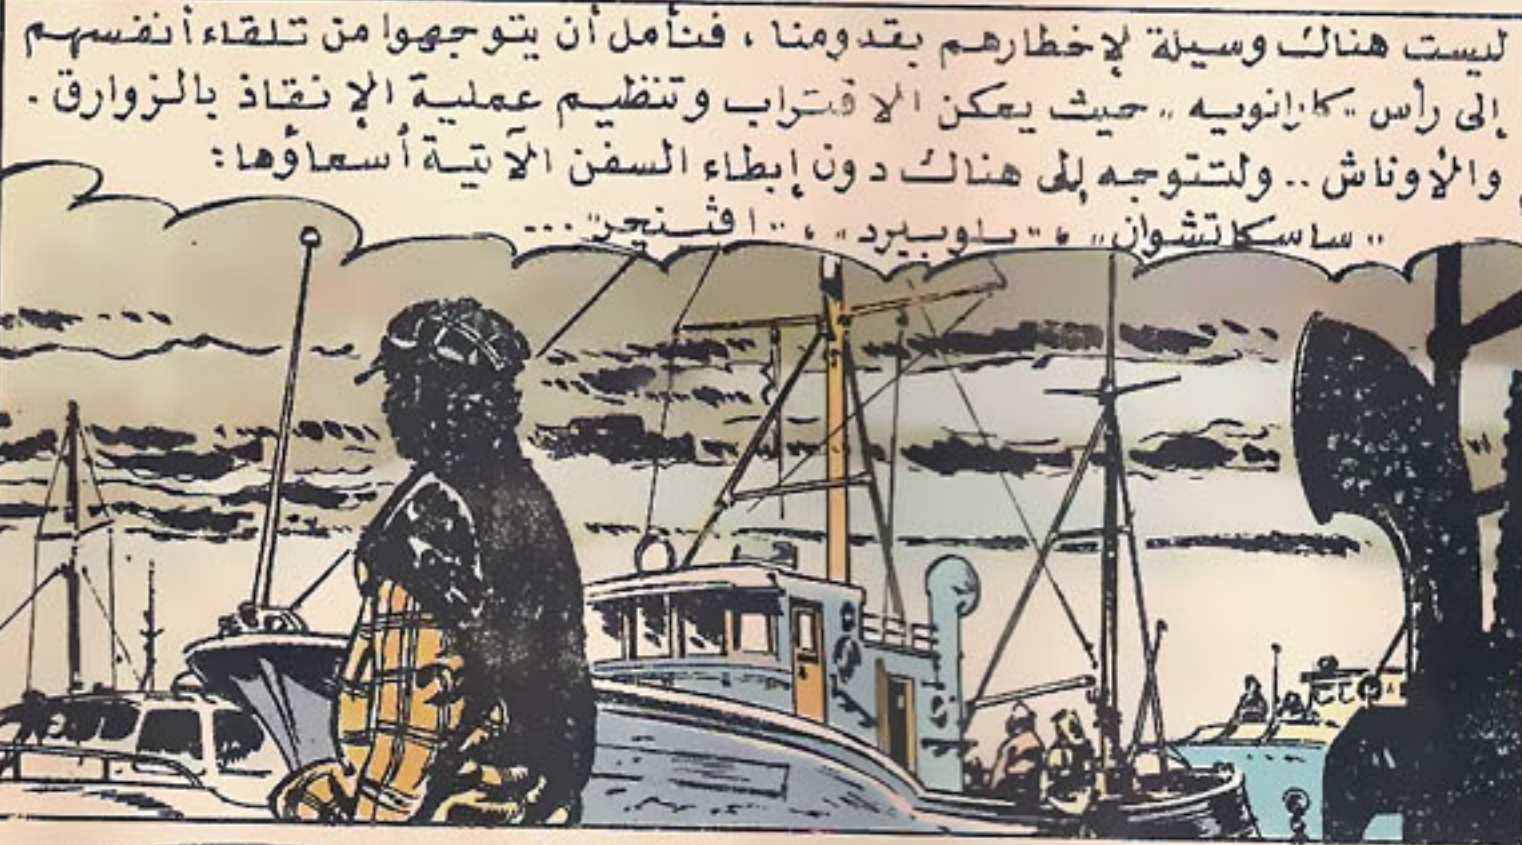 ليست هناك وسيلة لإخطارهم بقدومنا ، فنأمل أن يتوجهوا من تلقاء أنفسهم
إلى رأس „ كارانويه „ حيث يمكن الاقتراب وتنظيم عملية الإنقاذ بالزوارق .
والأوناش .. ولتتوجه إلى هناك دون إبطاء السفن الآتية أسماؤها :
„ ساسكاتشوان „ ، „ بلوبيرد „ ، „ افنجر „ ...